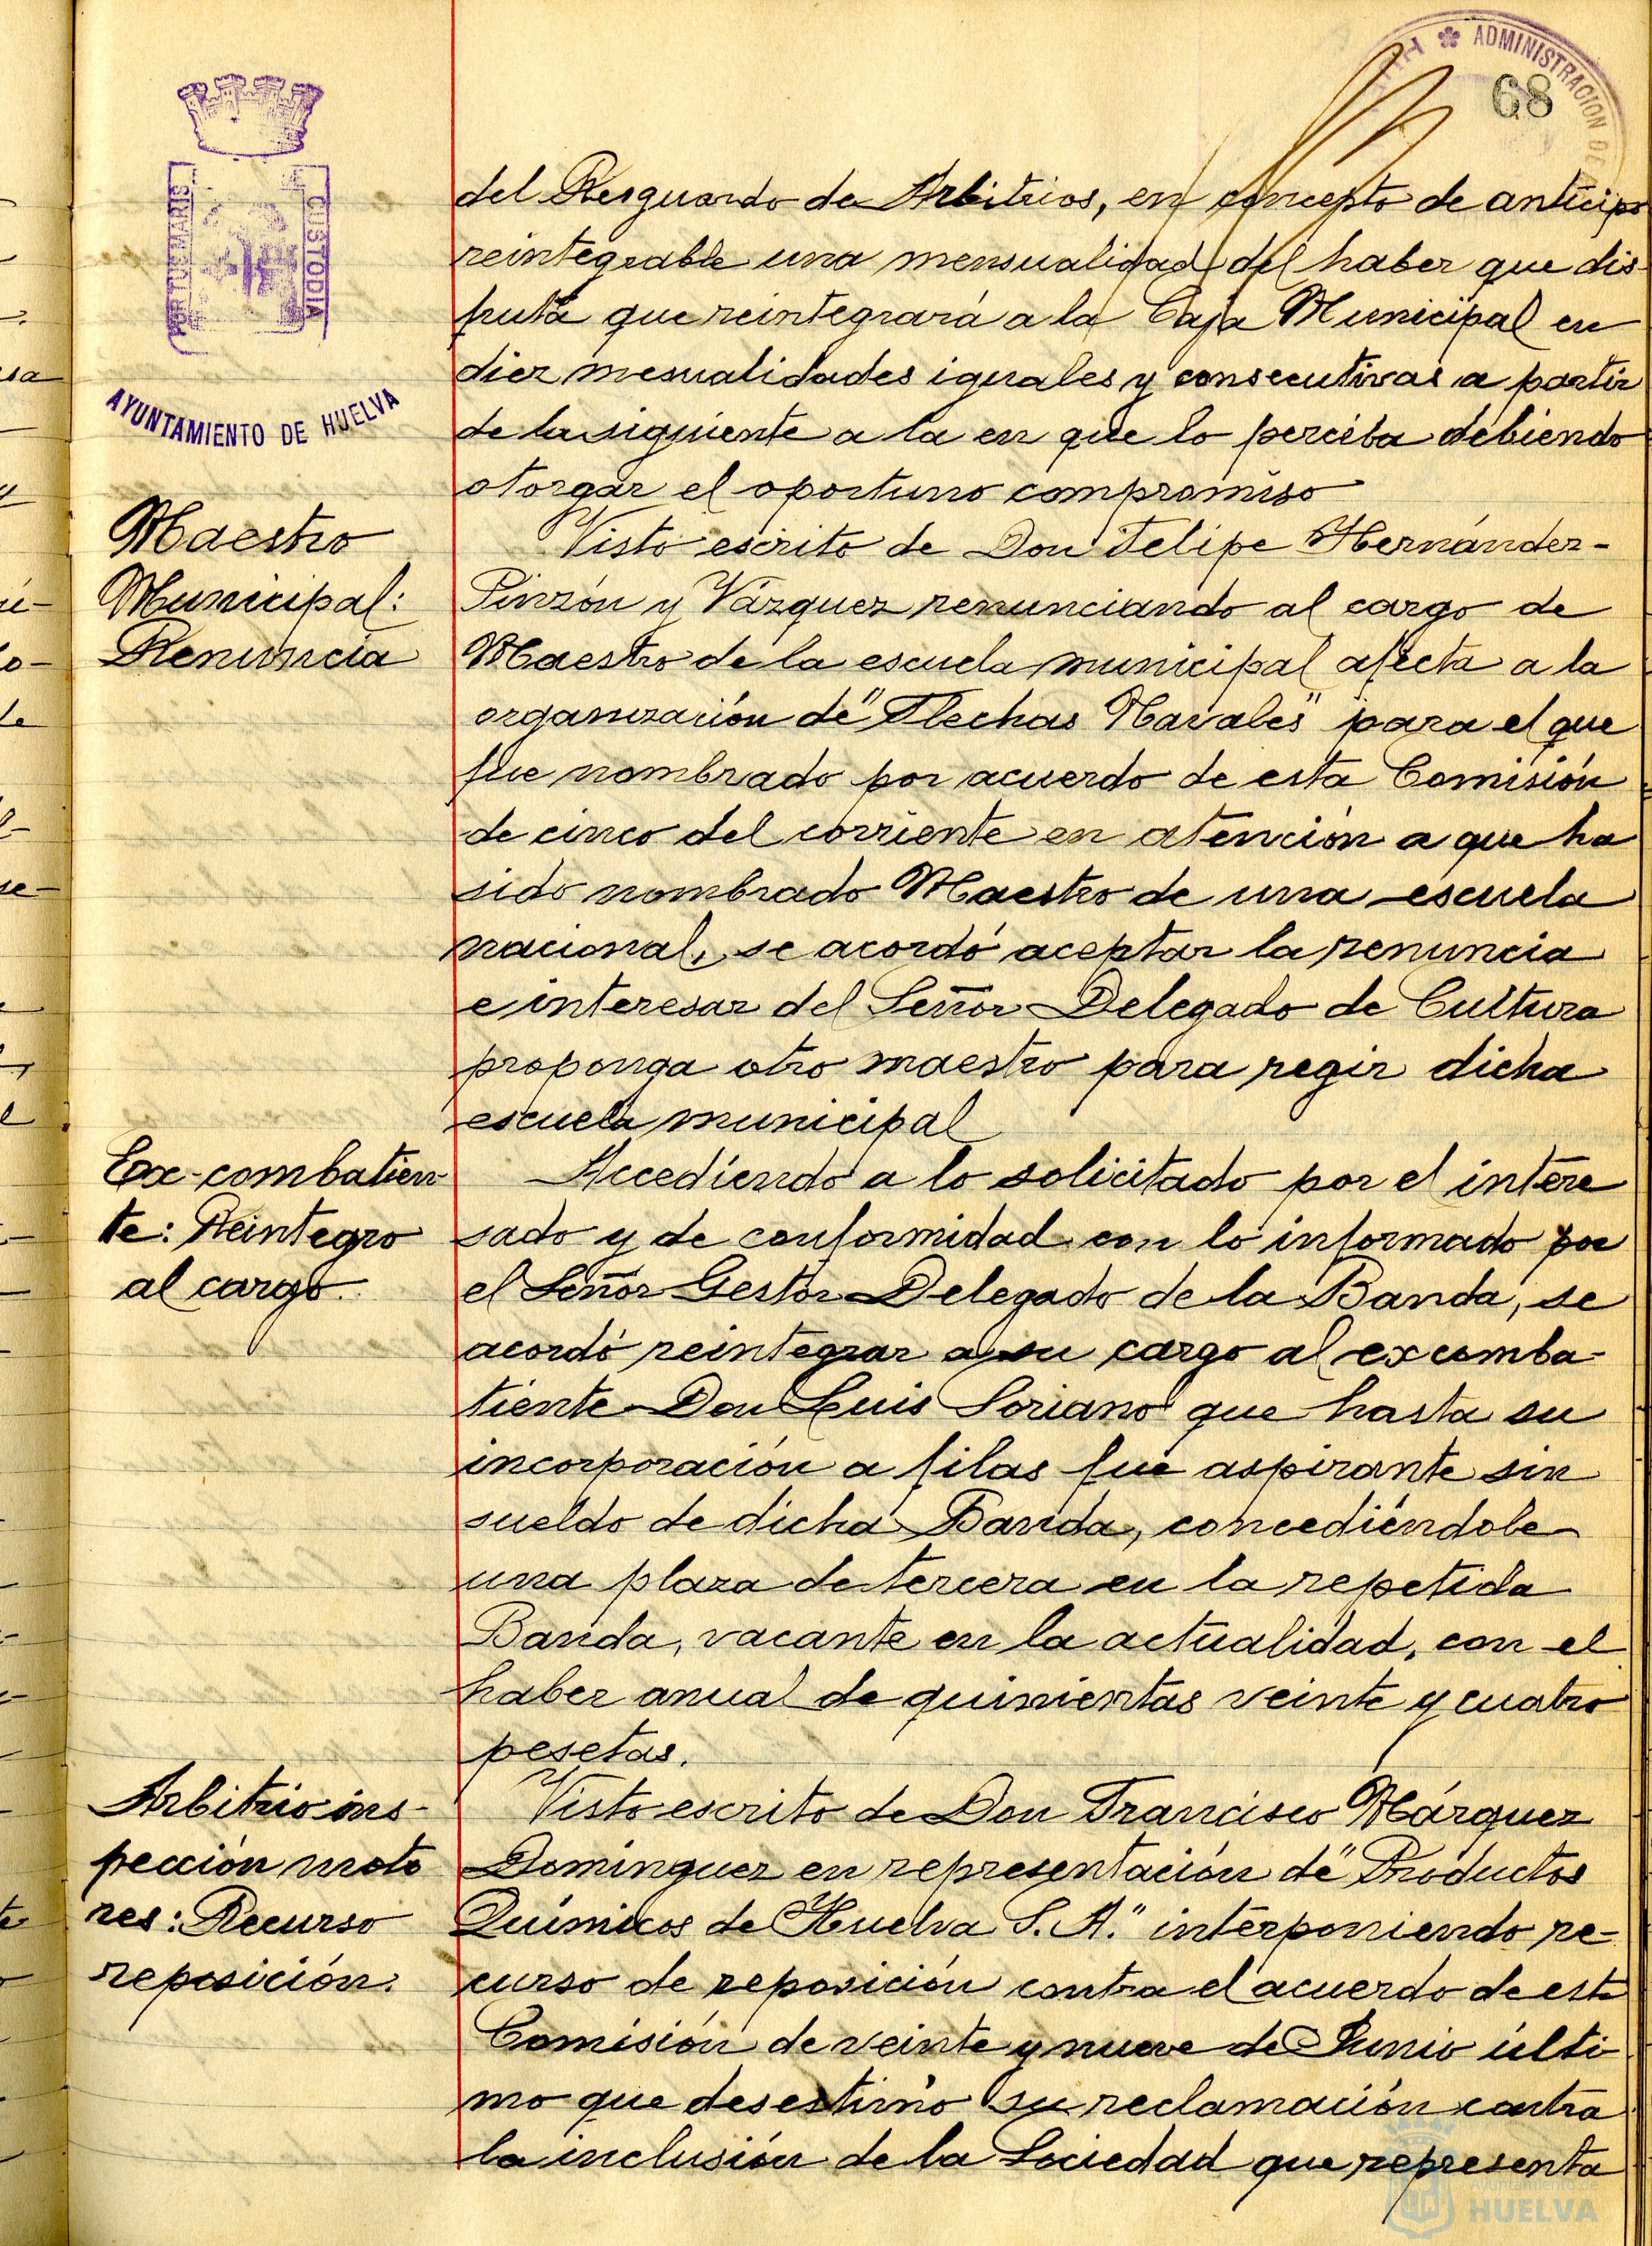 ADMINISTRACION DE
68
PORTUS MARIS
CUSTODIA
AYUNTAMIENTO DE HUELVA
del Resguardo de Arbitrios, en concepto de anticipo
reintegrable una mensualidad del haber que dis-
fruta que reintegrará a la Caja Municipal en
diez mesualidades iguales y consecutivas a partir
de la siguiente a la en que lo perciba debiendo
otorgar el oportuno compromiso
Maestro
Municipal:
Renuncia
Visto escrito de Don Felipe Hernández-
Pinzón y Vázquez renunciando al cargo de
Maestro de la escuela municipal afecta a la
organización de "Flechas Navales" para el que
fue nombrado por acuerdo de esta Comisión
de cinco del corriente en atención a que ha
sido nombrado Maestro de una escuela
nacional, se acordó aceptar la renuncia
e interesar del Señor Delegado de Cultura
proponga otro maestro para regir dicha
escuela municipal
Ex-combatien-
te: Reintegro
al cargo.
Accediendo a lo solicitado por el intere
sado y de conformidad con lo informado por
el Señor Gestor Delegado de la Banda, se
acordó reintegrar a su cargo al excomba-
tiente Don Luis Soriano que hasta su
incorporación a filas fué aspirante sin
sueldo de dicha Banda, concediéndole
una plaza de tercera en la repetida
Banda, vacante en la actualidad, con el
haber anual de quinientas veinte y cuatro
pesetas.
Arbitrio ins-
pección moto
res: Recurso
reposición.
Visto escrito de Don Francisco Márquez
Dominguez en representación de "Productos
Químicos de Huelva S.A." interponiendo re-
curso de reposición contra el acuerdo de esta
Comisión de veinte y nueve de Junio últi
mo que desestimó su reclamación contra
la inclusión de la Sociedad que representa
Ayuntamiento de
HUELVA